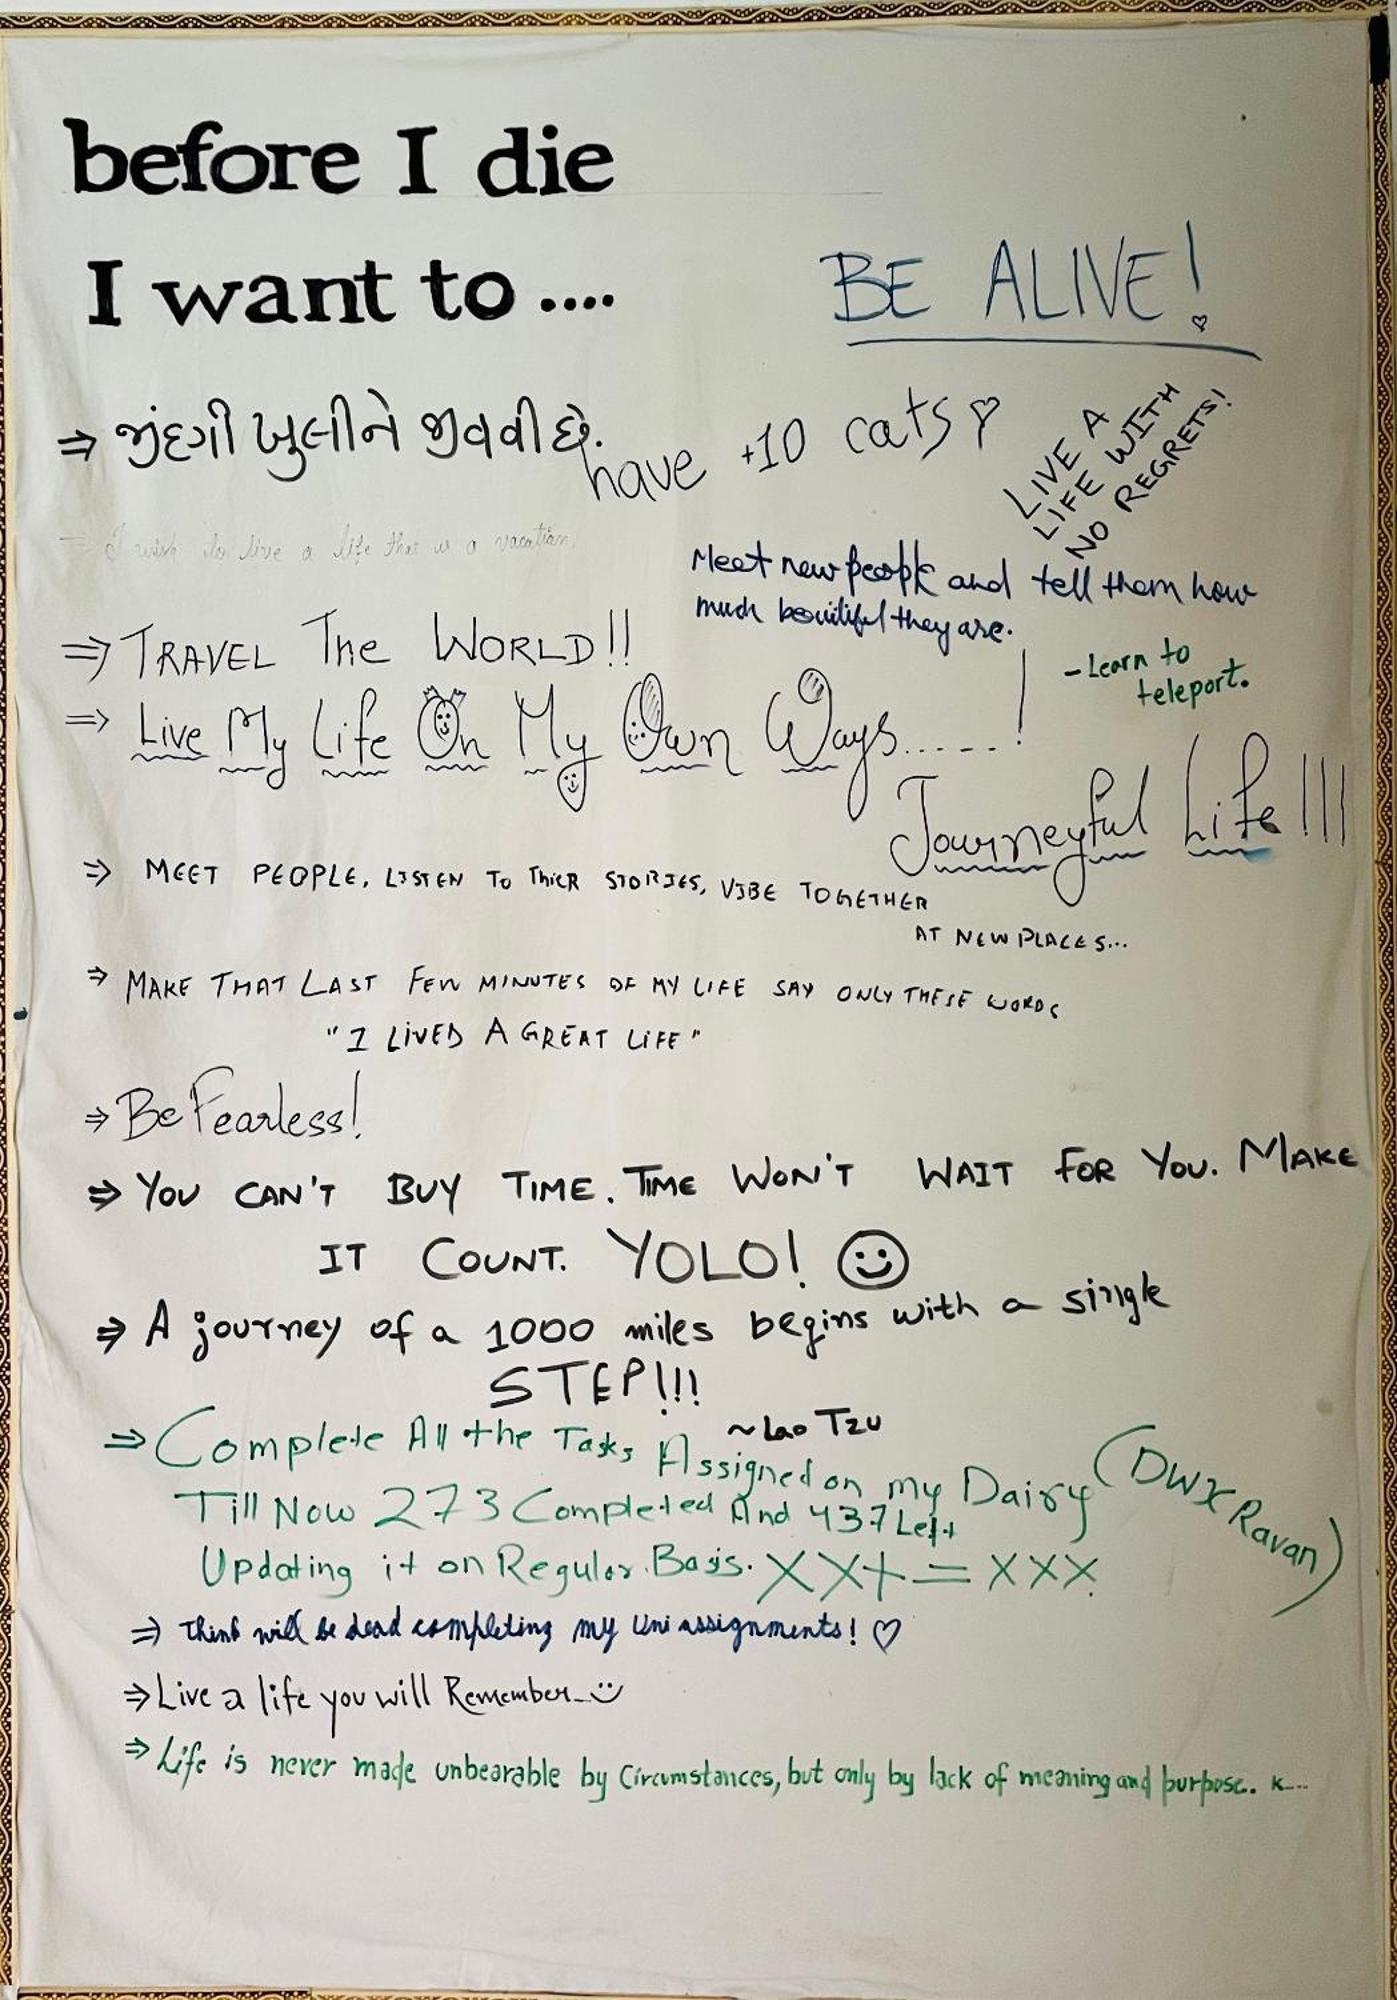 before I die
I want to ....
BE ALIVE!
⇒ જીંદગી ખુલીને જીવવી છે.
have +10 cats
LIVE A
LIFE WITH
NO REGRETS!
⇒ I wish to live a life that is a vacation.
Meet new people and tell them how
much beuitiful they are.
⇒ TRAVEL The WORLD!!
- Learn to
teleport.
⇒ Live My Life On My Own Ways......!
Journeyful Life!!!
⇒ MEET PEOPLE, LISTEN TO ThiER STORIES, VIBE TOGETHER
AT NEW PLACES...
⇒ MAKE THAT LAST FEW MINUTES OF MY LIFE SAY ONLY THESE WORDS
"I LIVED A GREAT LIFE"
⇒ Be Fearless!
⇒ YOU CAN'T BUY TIME. TIME WON'T WAIT FOR YOU. MAKE
IT COUNT. YOLO! ☺
⇒ A journey of a 1000 miles begins with a single
STEP!!!
~Lao Tzu
⇒ Complete All the Tasks Assigned on my Dairy (DWX Ravan)
Till Now 273 Completed And 437 Left
Updating it on Regular Basis. XX+=XXX
⇒ Think will be dead completing my Uni assignments! ♡
⇒ Live a life you will Remember..
⇒ Life is never made unbearable by Circumstances, but only by lack of meaning and purpose.. K...